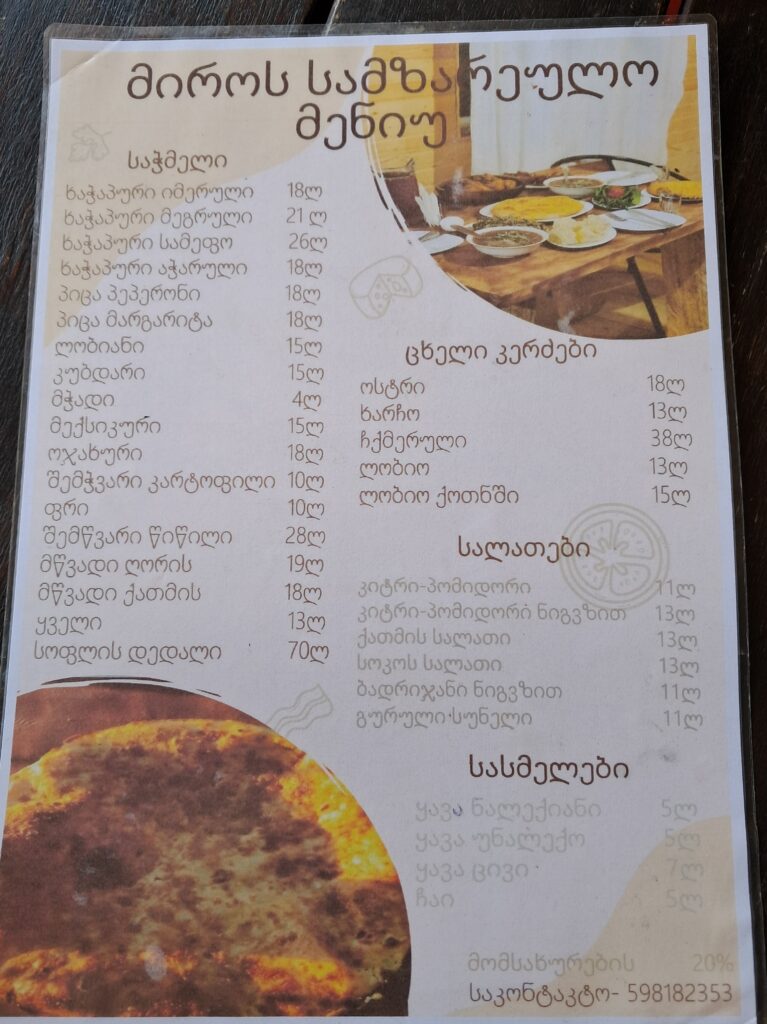 მიროს სამზარეულო
მენიუ
საჭმელი
ხაჭაპური იმერული 18ლ
ხაჭაპური მეგრული 21 ლ
ხაჭაპური სამეფო 26ლ
ხაჭაპური აჭარული 18ლ
პიცა პეპერონი 18ლ
პიცა მარგარიტა 18ლ
ლობიანი 15ლ
კუბდარი 15ლ
მჭადი 4ლ
მექსიკური 15ლ
ოჯახური 18ლ
შემჭვარი კარტოფილი 10ლ
ფრი 10ლ
შემწვარი წიწილი 28ლ
მწვადი ღორის 19ლ
მწვადი ქათმის 18ლ
ყველი 13ლ
სოფლის დედალი 70ლ
ცხელი კერძები
ოსტრი 18ლ
ხარჩო 13ლ
ჩქმერული 38ლ
ლობიო 13ლ
ლობიო ქოთნში 15ლ
სალათები
კიტრი-პომიდორი 11ლ
კიტრი-პომიდორი ნიგვზით 13ლ
ქათმის სალათი 13ლ
სოკოს სალათი 13ლ
ბადრიჯანი ნიგვზით 11ლ
გურული სუნელი 11ლ
სასმელები
ყავა ნალექიანი 5ლ
ყავა უნალექო 5ლ
ყავა ცივი 7ლ
ჩაი 5ლ
მომსახურების 20%
საკონტაკტო- 598182353